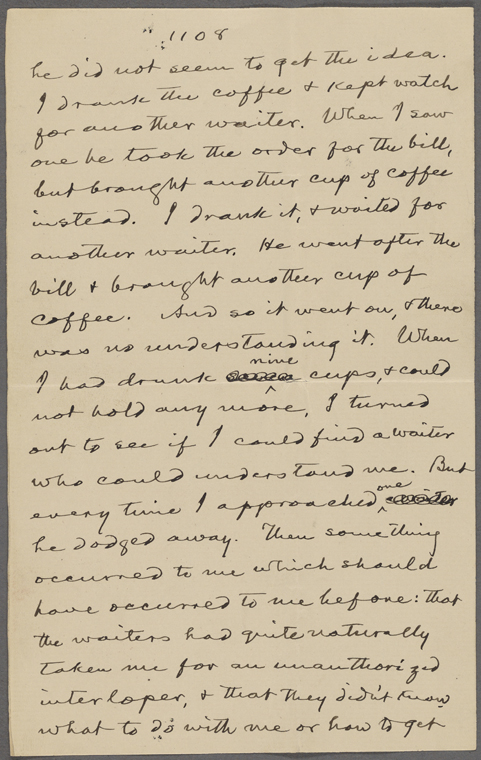 1108
he did not seem to get the idea.
I drank the coffee & kept watch
for another waiter. When I saw
one he took the order for the bill,
but brought another cup of coffee
instead. I drank it, & waited for
another waiter. He went after the
bill & brought another cup of
coffee. And so it went on, & there
was no understanding it. When
nine
I had drunk cups, & could
not hold any more, I turned
out to see if I could find a waiter
who could understand me. But
one
every time I approached
he dodged away. Then something
occurred to me which should
have occurred to me before: that
the waiters had quite naturally
taken me for an unauthorized
interloper, & that they didn't know
what to do with me or how to get